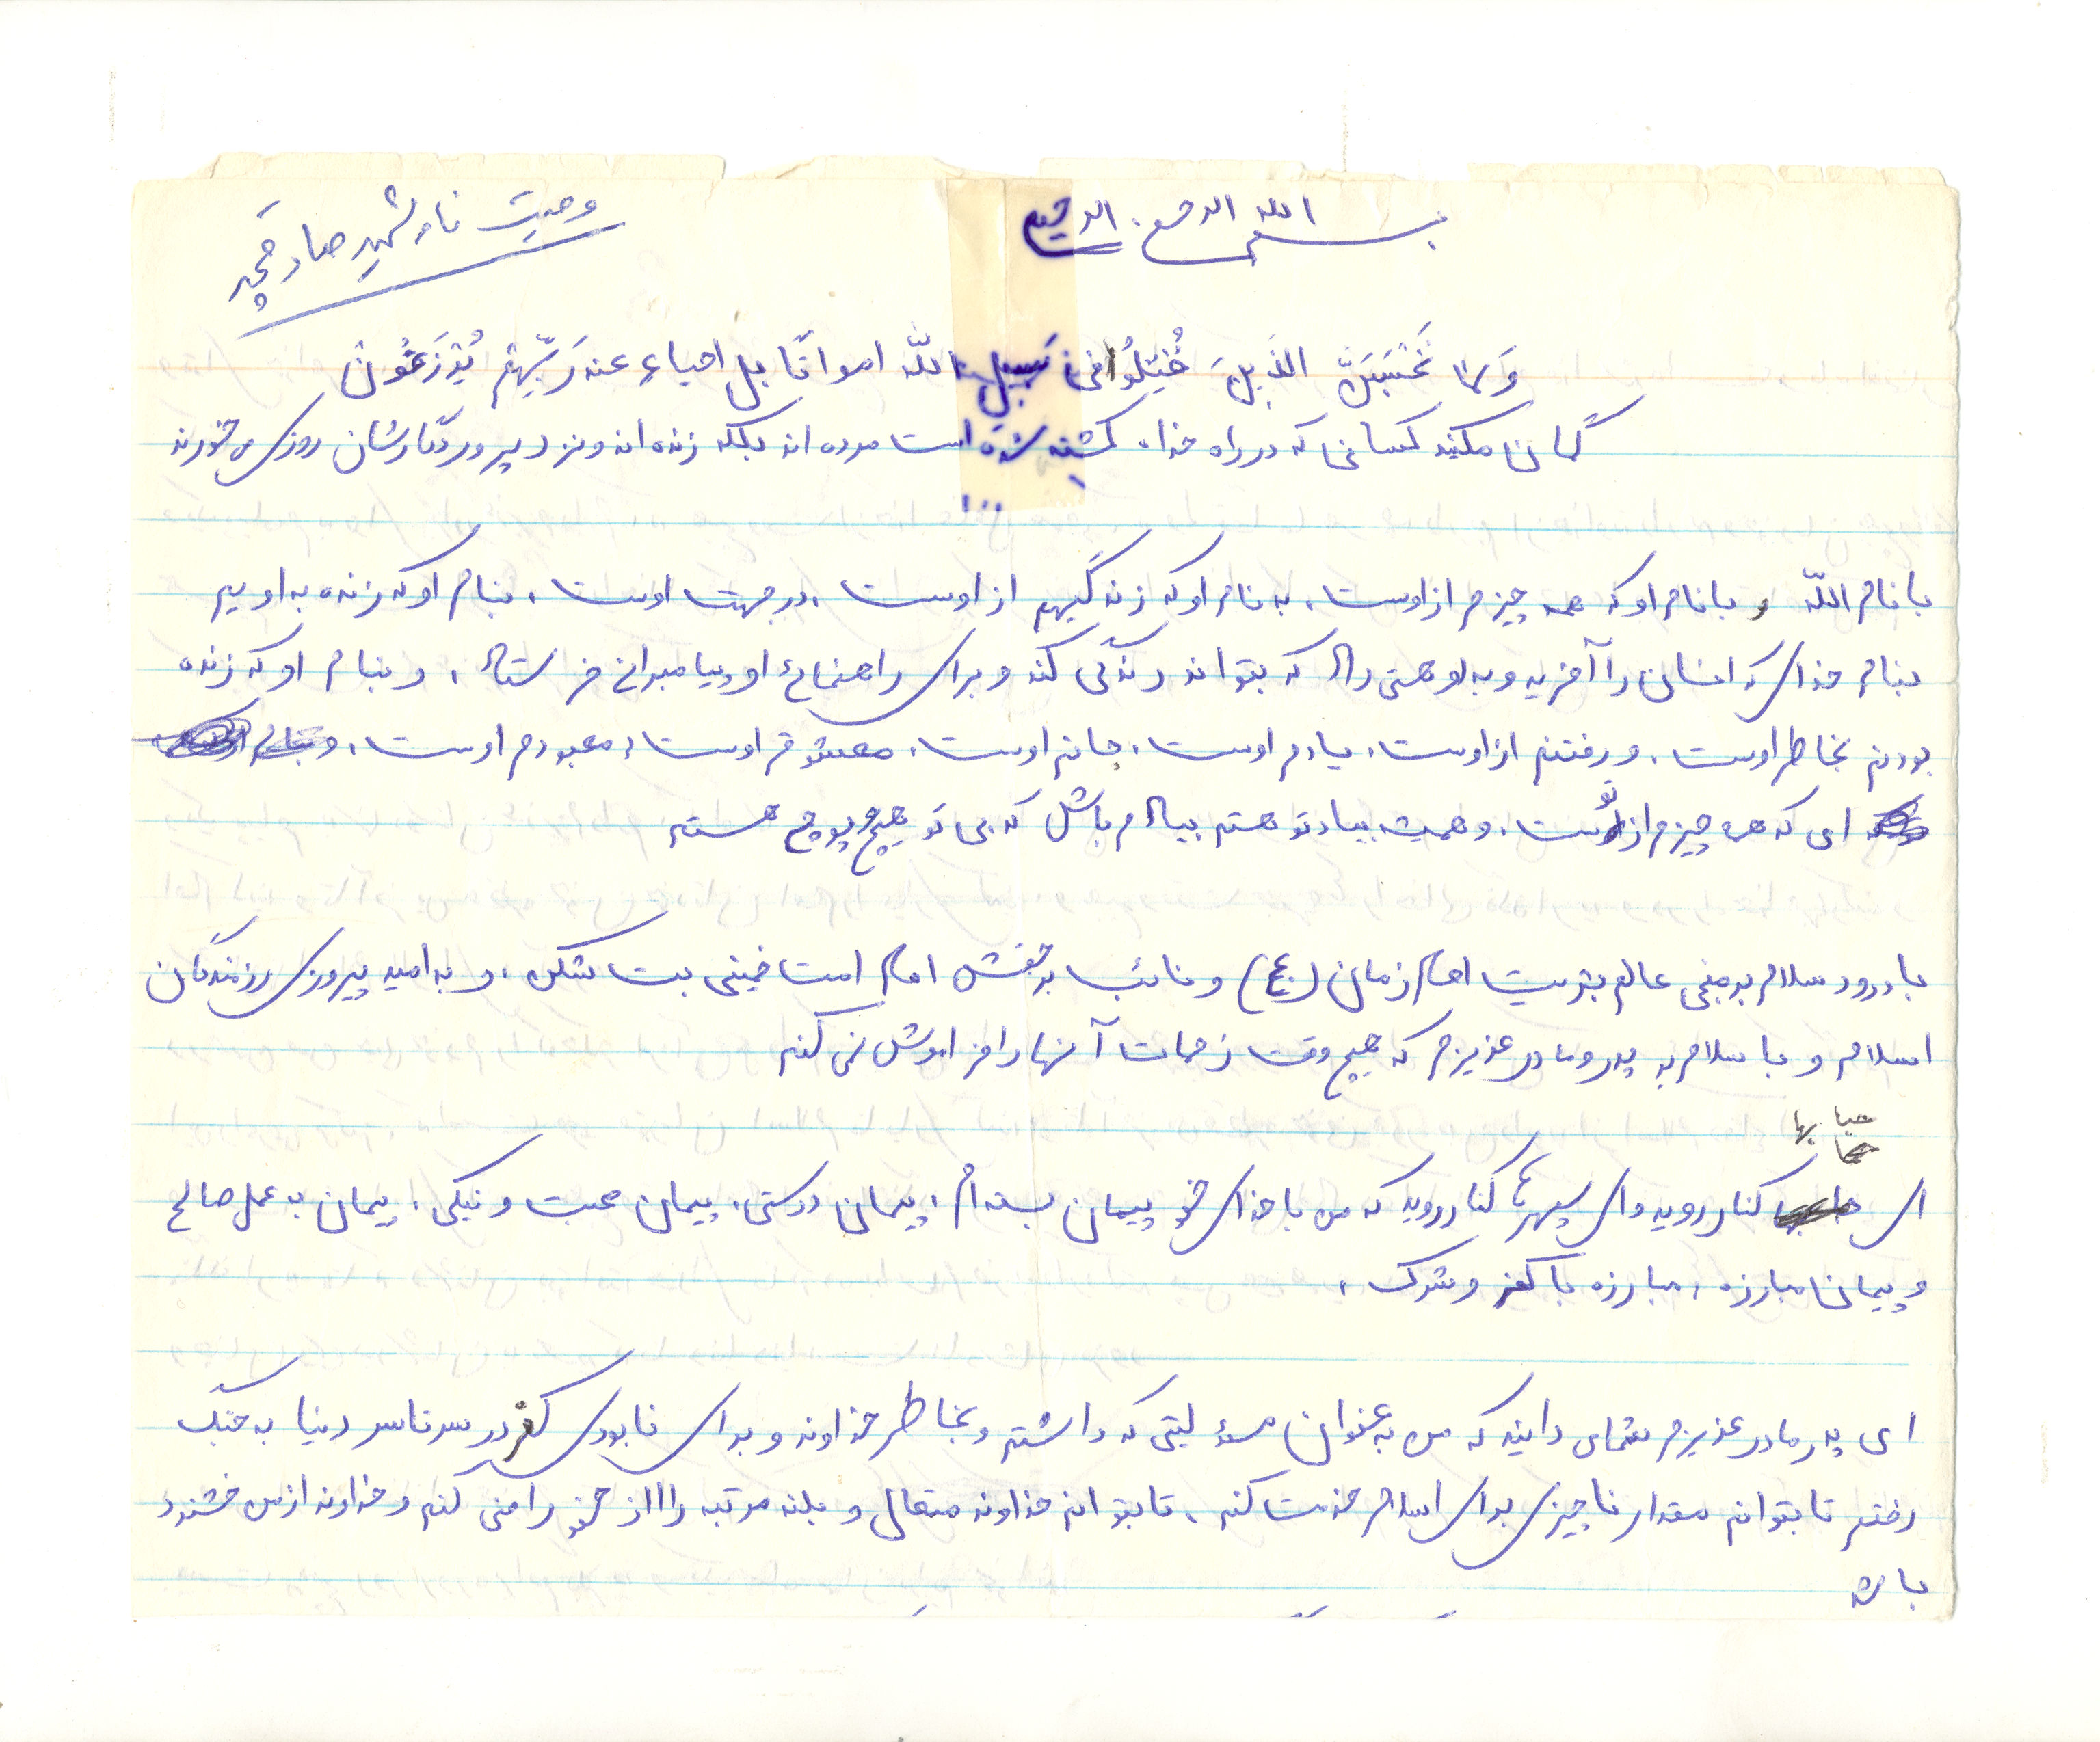 بسم الله الرحمن الرحیم
وصیت نامه شهید صادقی
وَلا تَحْسَبَنَّ الذَّینَ قُتِلُوا فی سَبیلِ اللّه امواتًا بل احیاء عند رَبِّهِم یُرْزَقُونَ
گمان مکنید کسانی که در راه خدا کشته شده است مرده اند بلکه زنده اند و نزد پروردگارشان روزی می خورند
...
با نام اللّه و با نام او که همه چیزم از اوست، به نام او که زندگیم از اوست، در جهت اوست، بنام او که زنده به اویم
بنام خدای که انسان را آفرید و به او هستی داد که بتواند زندگی کند و برای راهنمائی او پیامبرانی فرستاد، و بنام او که زنده
بودنم بخاطر اوست، و رفتنم از اوست، یادم اوست، جانم اوست، معشوقم اوست، معبودم اوست، و
ای که همه چیزم از توست، و همیشه بیاد تو هستم بیادم باش که بی تو هیچ و پوچ هستم
با درود و سلام بر منجی عالم بشریت امام زمان (عج) و نائب بر حقش امام امت خمینی بت شکن، و به امید پیروزی رزمندگان
اسلام و با سلام به پدر و مادر عزیزم که هیچ وقت زحمات آنها را فراموش نمی کنم
ای کنار روید و ای سپهرها کنار روید که من با خدای خود پیمان بسته ام، پیمان درستی، پیمان محبت و نیکی، پیمان به عمل صالح
و پیمان مبارزه، مبارزه با کفر و شرک،
ای پدر مادر عزیزم شما می دانید که من به عنوان مسؤلیتی که داشتم و بخاطر خداوند و برای نابودی کفر در سرتاسر دنیا به جنگ
رفتم تا بتوانم مقدار ناچیزی برای اسلام خدمت کنم، تا بتوانم خداوند متعال و بلند مرتبه را از خود راضی کنم و خداوند از من خشنود
باشد